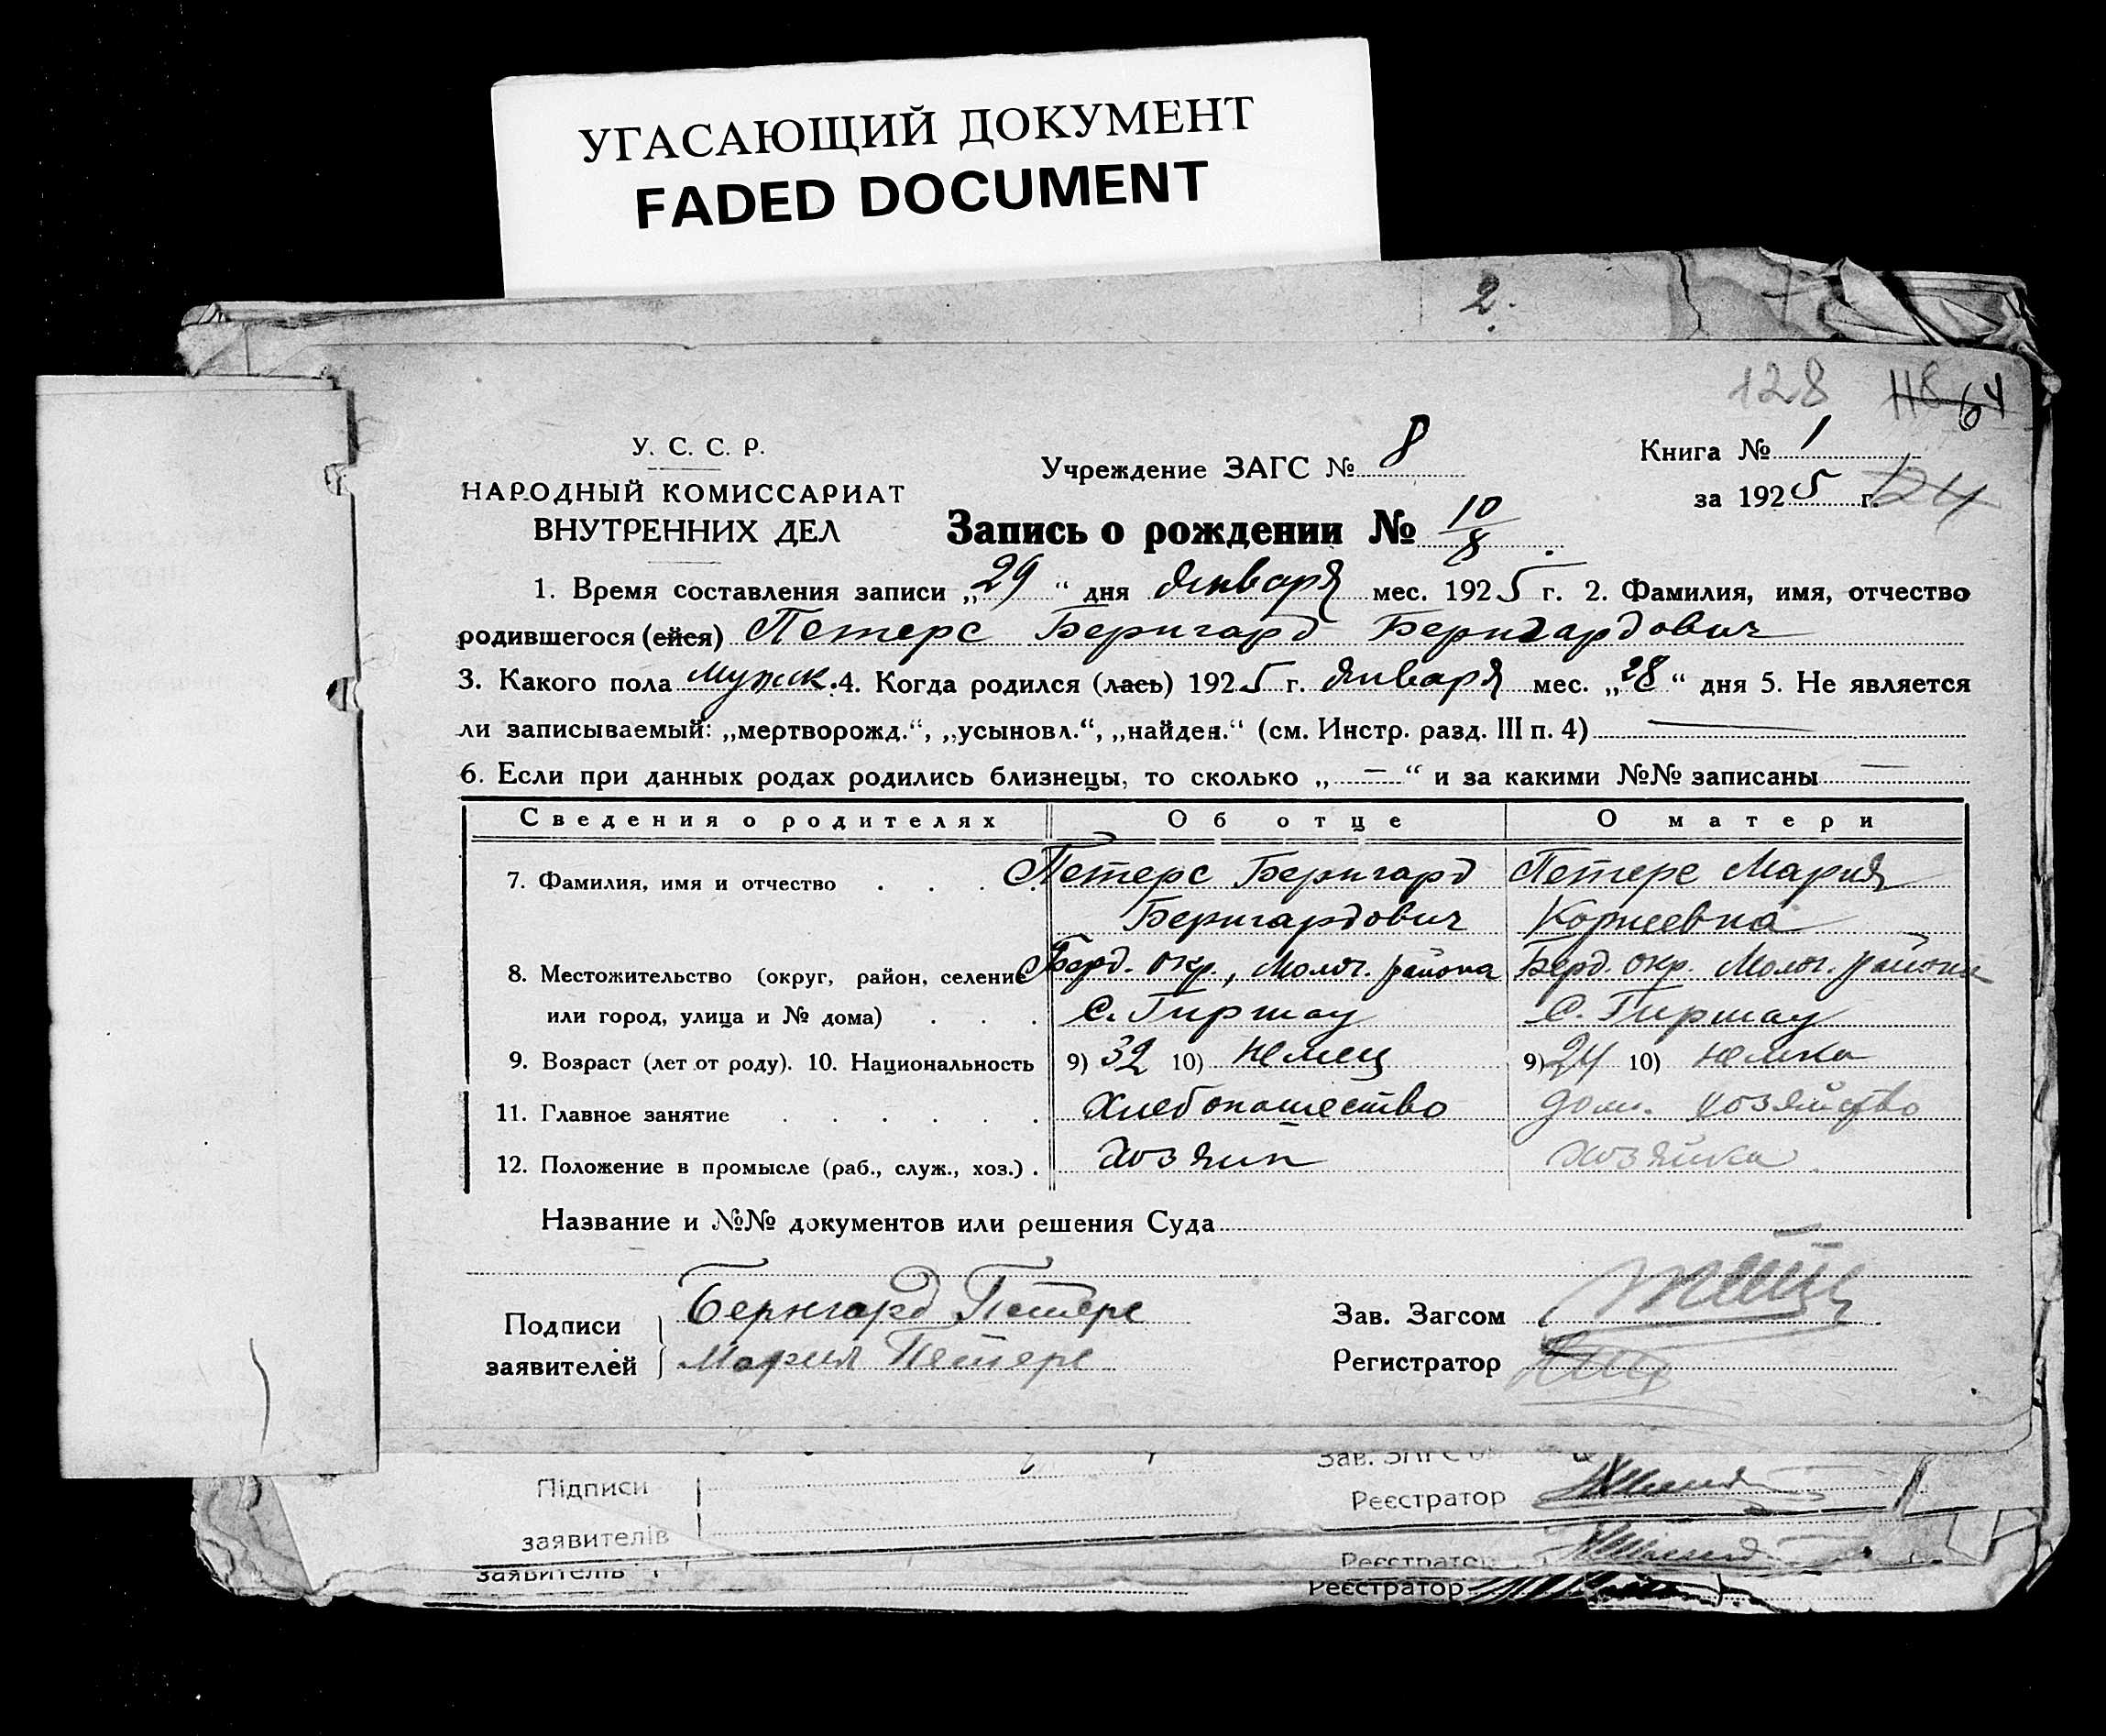 УГАСАЮЩИЙ ДОКУМЕНТ
FADED DOCUMENT
2.
128 118 64
У. С. С. Р.
НАРОДНЫЙ КОМИССАРИАТ
ВНУТРЕННИХ ДЕЛ
Учреждение ЗАГС № 8
Книга № 1
за 1925 г. 24
Запись о рождении № 10/8
1. Время составления записи „29“ дня Января мес. 1925 г. 2. Фамилия, имя, отчество
родившегося (ейся) Петерс Бернгард Бернгардович
3. Какого пола мужск. 4. Когда родился (лась) 1925 г. Января мес. „28“ дня 5. Не является
ли записываемый: „мертворожд.“, „усыновл.“, „найден.“ (см. Инстр. разд. III п. 4) —
6. Если при данных родах родились близнецы, то сколько „ — “ и за какими №№ записаны —
Сведения о родителях Об отце О матери
7. Фамилия, имя и отчество . . . Петерс Бернгард Петерс Мария
Бернгардович Корнеевна
8. Местожительство (округ, район, селение Берд. окр., Молоч. района Берд. окр. Молоч. района
или город, улица и № дома) . . . с. Гиршау с. Гиршау
9. Возраст (лет от роду). 10. Национальность 9) 32 10) немец 9) 24 10) немка
11. Главное занятие . . . . . . Хлебопашество дом. хозяйство
12. Положение в промысле (раб., служ., хоз.) . хозяин хозяйка
Название и №№ документов или решения Суда
Подписи
заявителей
Бернгард Петерс
Мария Петерс
Зав. Загсом
Регистратор
Підписи
заявителів
Зав. ЗАГС'ом
Реєстратор
Реєстратор
заявителів
Реєстратор